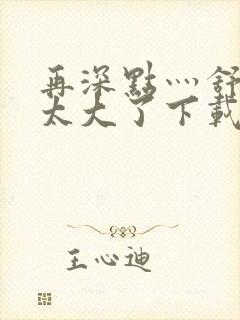 再深點灬舒
太大了下載
王心迪